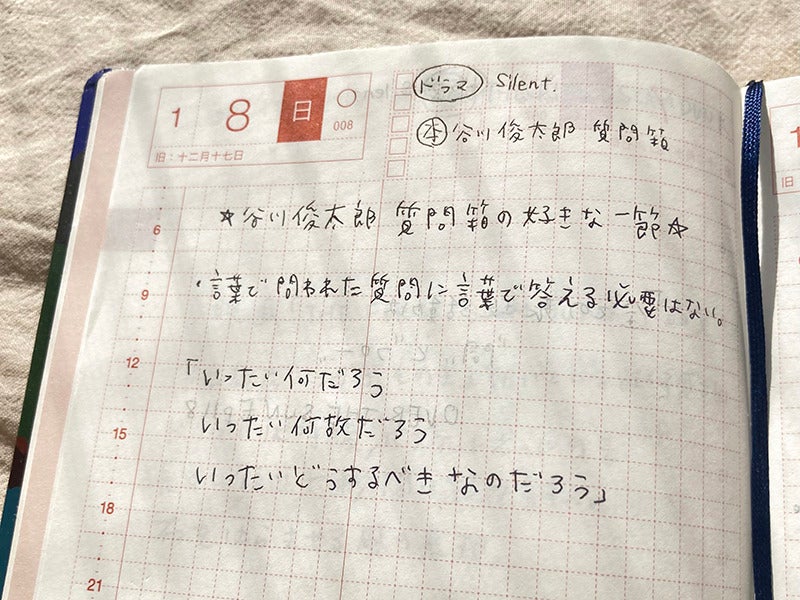 1 8 日 ○
008
旧:十二月十七日
ドラマ Silent.
本 谷川俊太郎 質問箱
☆谷川俊太郎 質問箱の好きな一節☆
・言葉で問われた質問に言葉で答える必要はない。
「いったい何だろう
いったい何故だろう
いったいどうするべきなのだろう」
6
9
12
15
18
21
1
旧